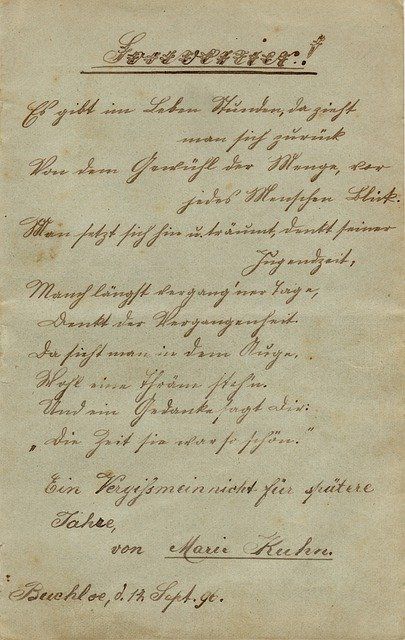 Souvenier!
Es gibt im Leben Stunden, da zieht
man sich zurück
Von dem Gewühl der Menge, vor
jedes Menschen Blick.
Man setzt sich hin u. träumt, denkt seiner
Jugendzeit,
Manch längst vergang'ner Tage,
Denkt der Vergangenheit
Da sieht man in dem Auge,
Wohl eine Thräne steh'n.
Und ein Gedanke sagt Dir:
„Die Zeit sie war so schön."
Ein Vergißmeinnicht für spätere
Jahre,
von Marie Kuhn.
Buchloe, d. 12. Sept. 90.